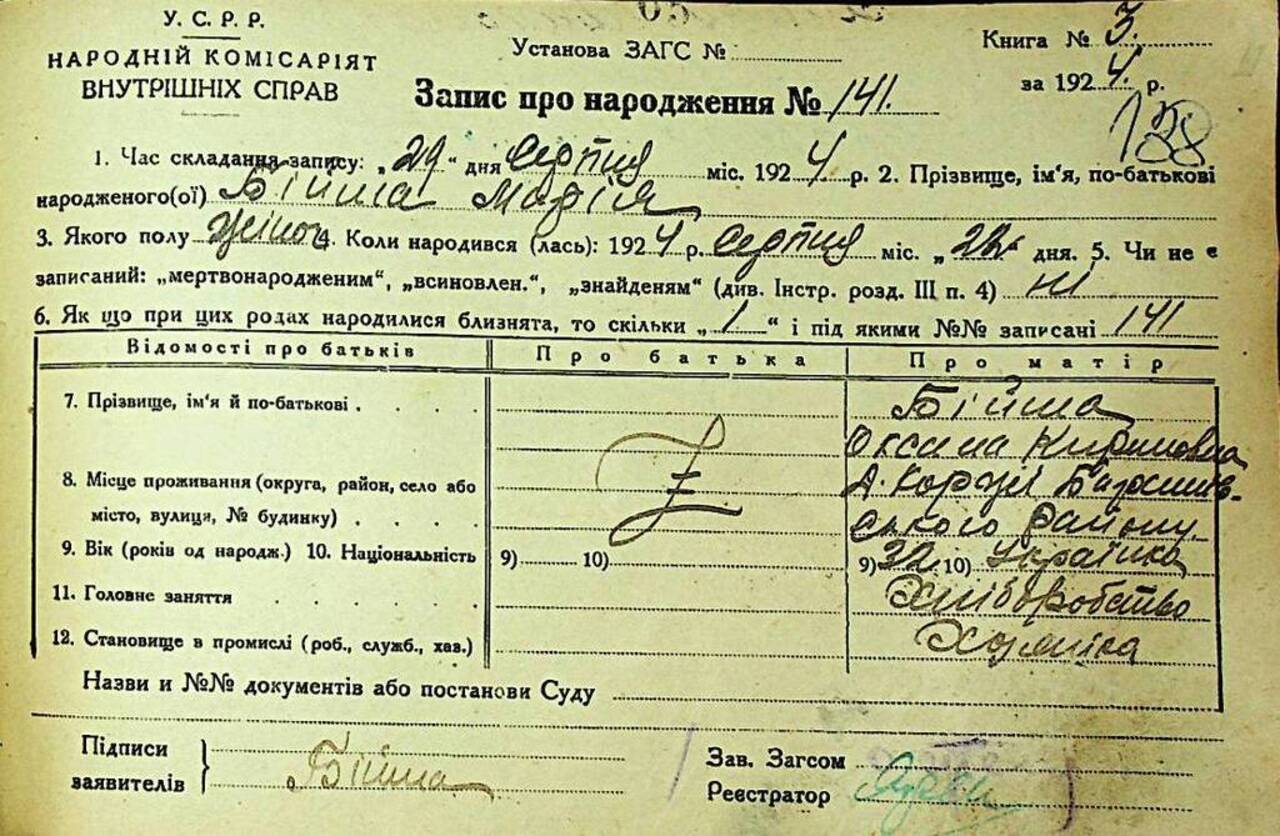 У. С. Р. Р.
НАРОДНІЙ КОМІСАРІЯТ
ВНУТРІШНІХ СПРАВ
Установа ЗАГС №
Книга № 3.
за 1924 р.
Запис про народження № 141.
138
1. Час складання запису: „29“ дня Серпня міс. 1924 р. 2. Прізвище, ім'я, по-батькові
народженого(ої) Бійма Марія
3. Якого полу жіноч 4. Коли народився (лась): 1924 р. Серпня міс. „22“ дня. 5. Чи не є
записаний: „мертвонародженим“, „всиновлен.“, „знайденям“ (див. Інстр. розд. ІІІ п. 4) ні
6. Як що при цих родах народилися близнята, то скільки „1“ і під якими №№ записані 141
Відомості про батьків Про батька Про матір
7. Прізвище, ім'я й по-батькові Бійма
Оксана
8. Місце проживання (округа, район, село або
місто, вулиця, № будинку) ського району.
9. Вік (років од народж.) 10. Національність 9) 10) 9) 32 10) Українка
11. Головне заняття Хліборобство
12. Становище в промислі (роб., служб., хаз.) Хазяйка
Назви и №№ документів або постанови Суду
Підписи
заявителів Бійма
Зав. Загсом
Реєстратор